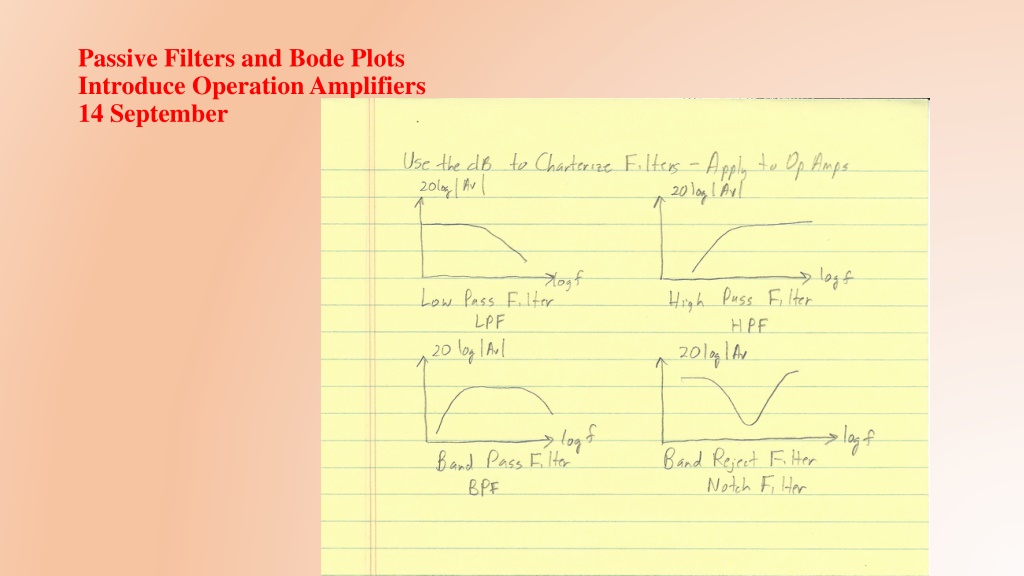 Passive Filters and Bode Plots
Introduce Operation Amplifiers
14 September
Use the dB to Charterize Filters - Apply to Op Amps
20log|Av|
logf
Low Pass Filter
LPF
20log|Av|
logf
High Pass Filter
HPF
20 log|Av|
logf
Band Pass Filter
BPF
20log|Av
logf
Band Reject Filter
Notch Filter